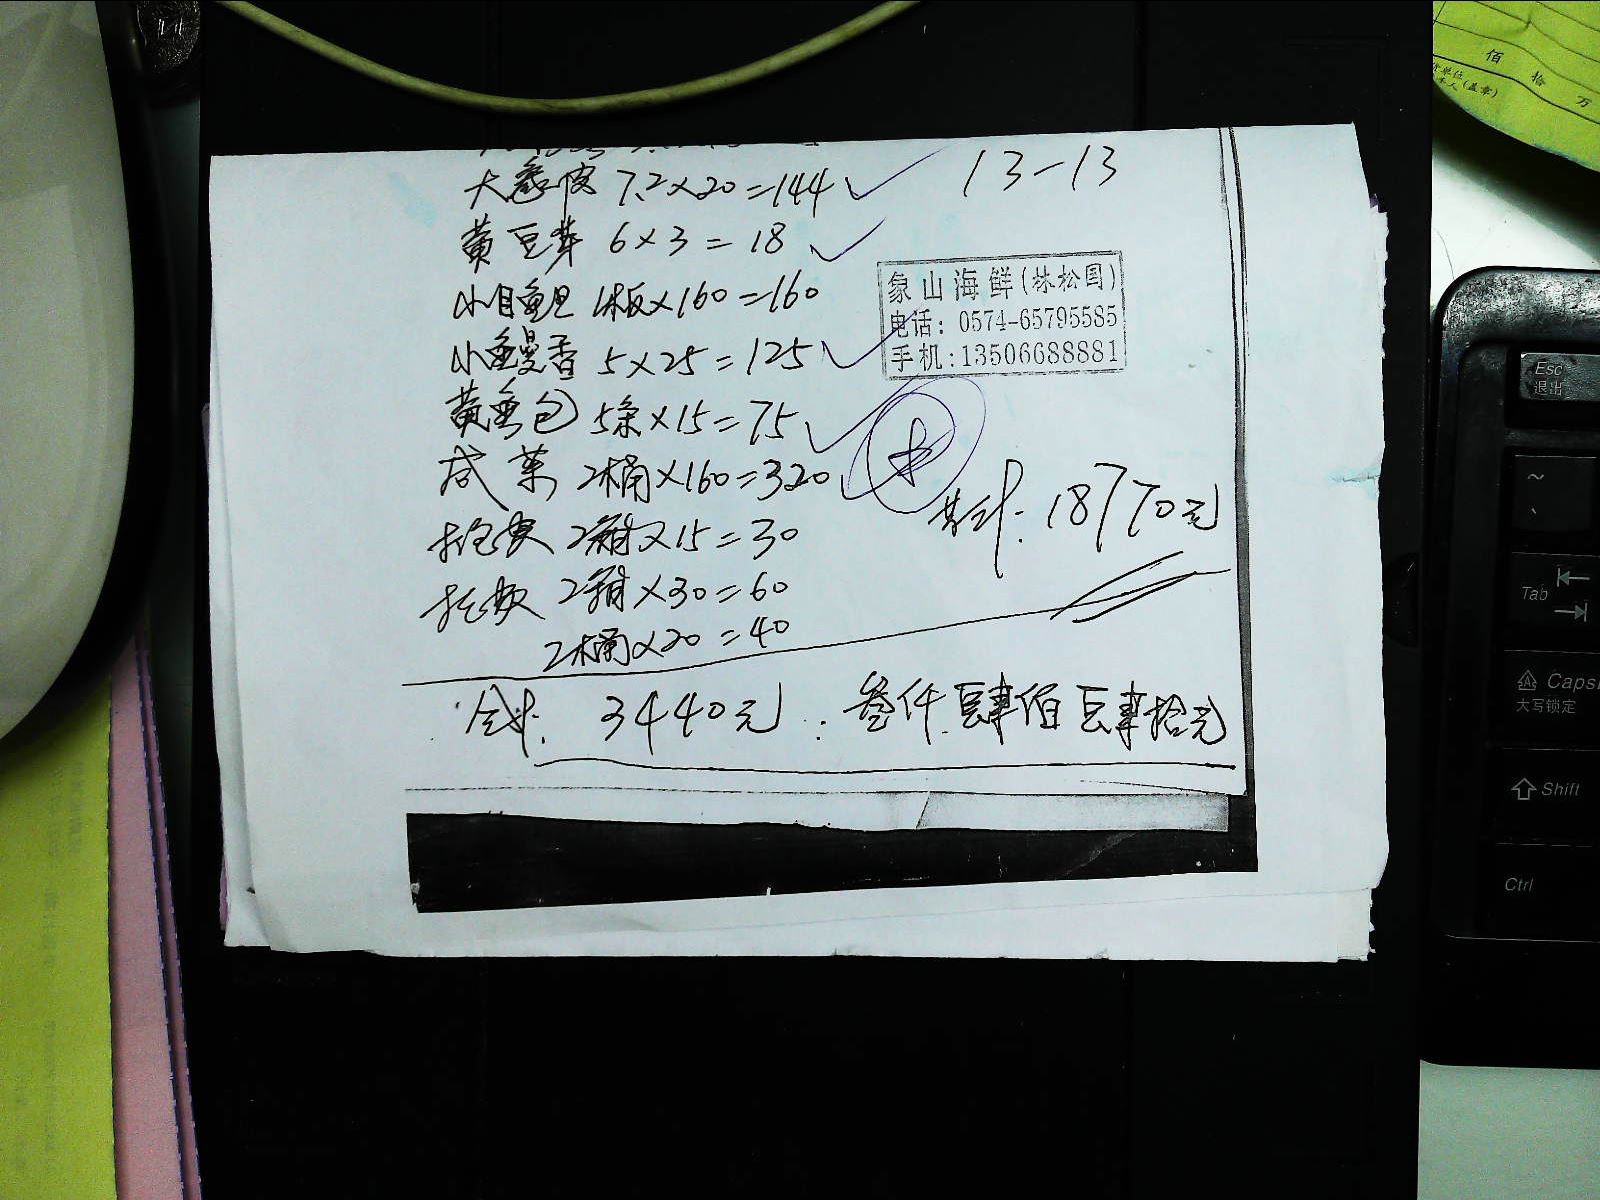 13-13
大蜇皮 7.2×20=144
黄豆芽 6×3=18
小目鱼旦 1板×160=160
小鳗香 5×25=125
黄鱼包 5条×15=75
咸菜 2桶×160=320
2箱×15=30
托费 2箱×30=60
2桶×20=40
合计: 3440元. 叁仟肆佰肆拾元
象山海鲜(林松国)
电话: 0574-65795585
手机:13506688881
共计: 18770元
佰 拾 万
(盖章)
Esc
退出
~
Tab
Caps
大写锁定
Shift
Ctrl